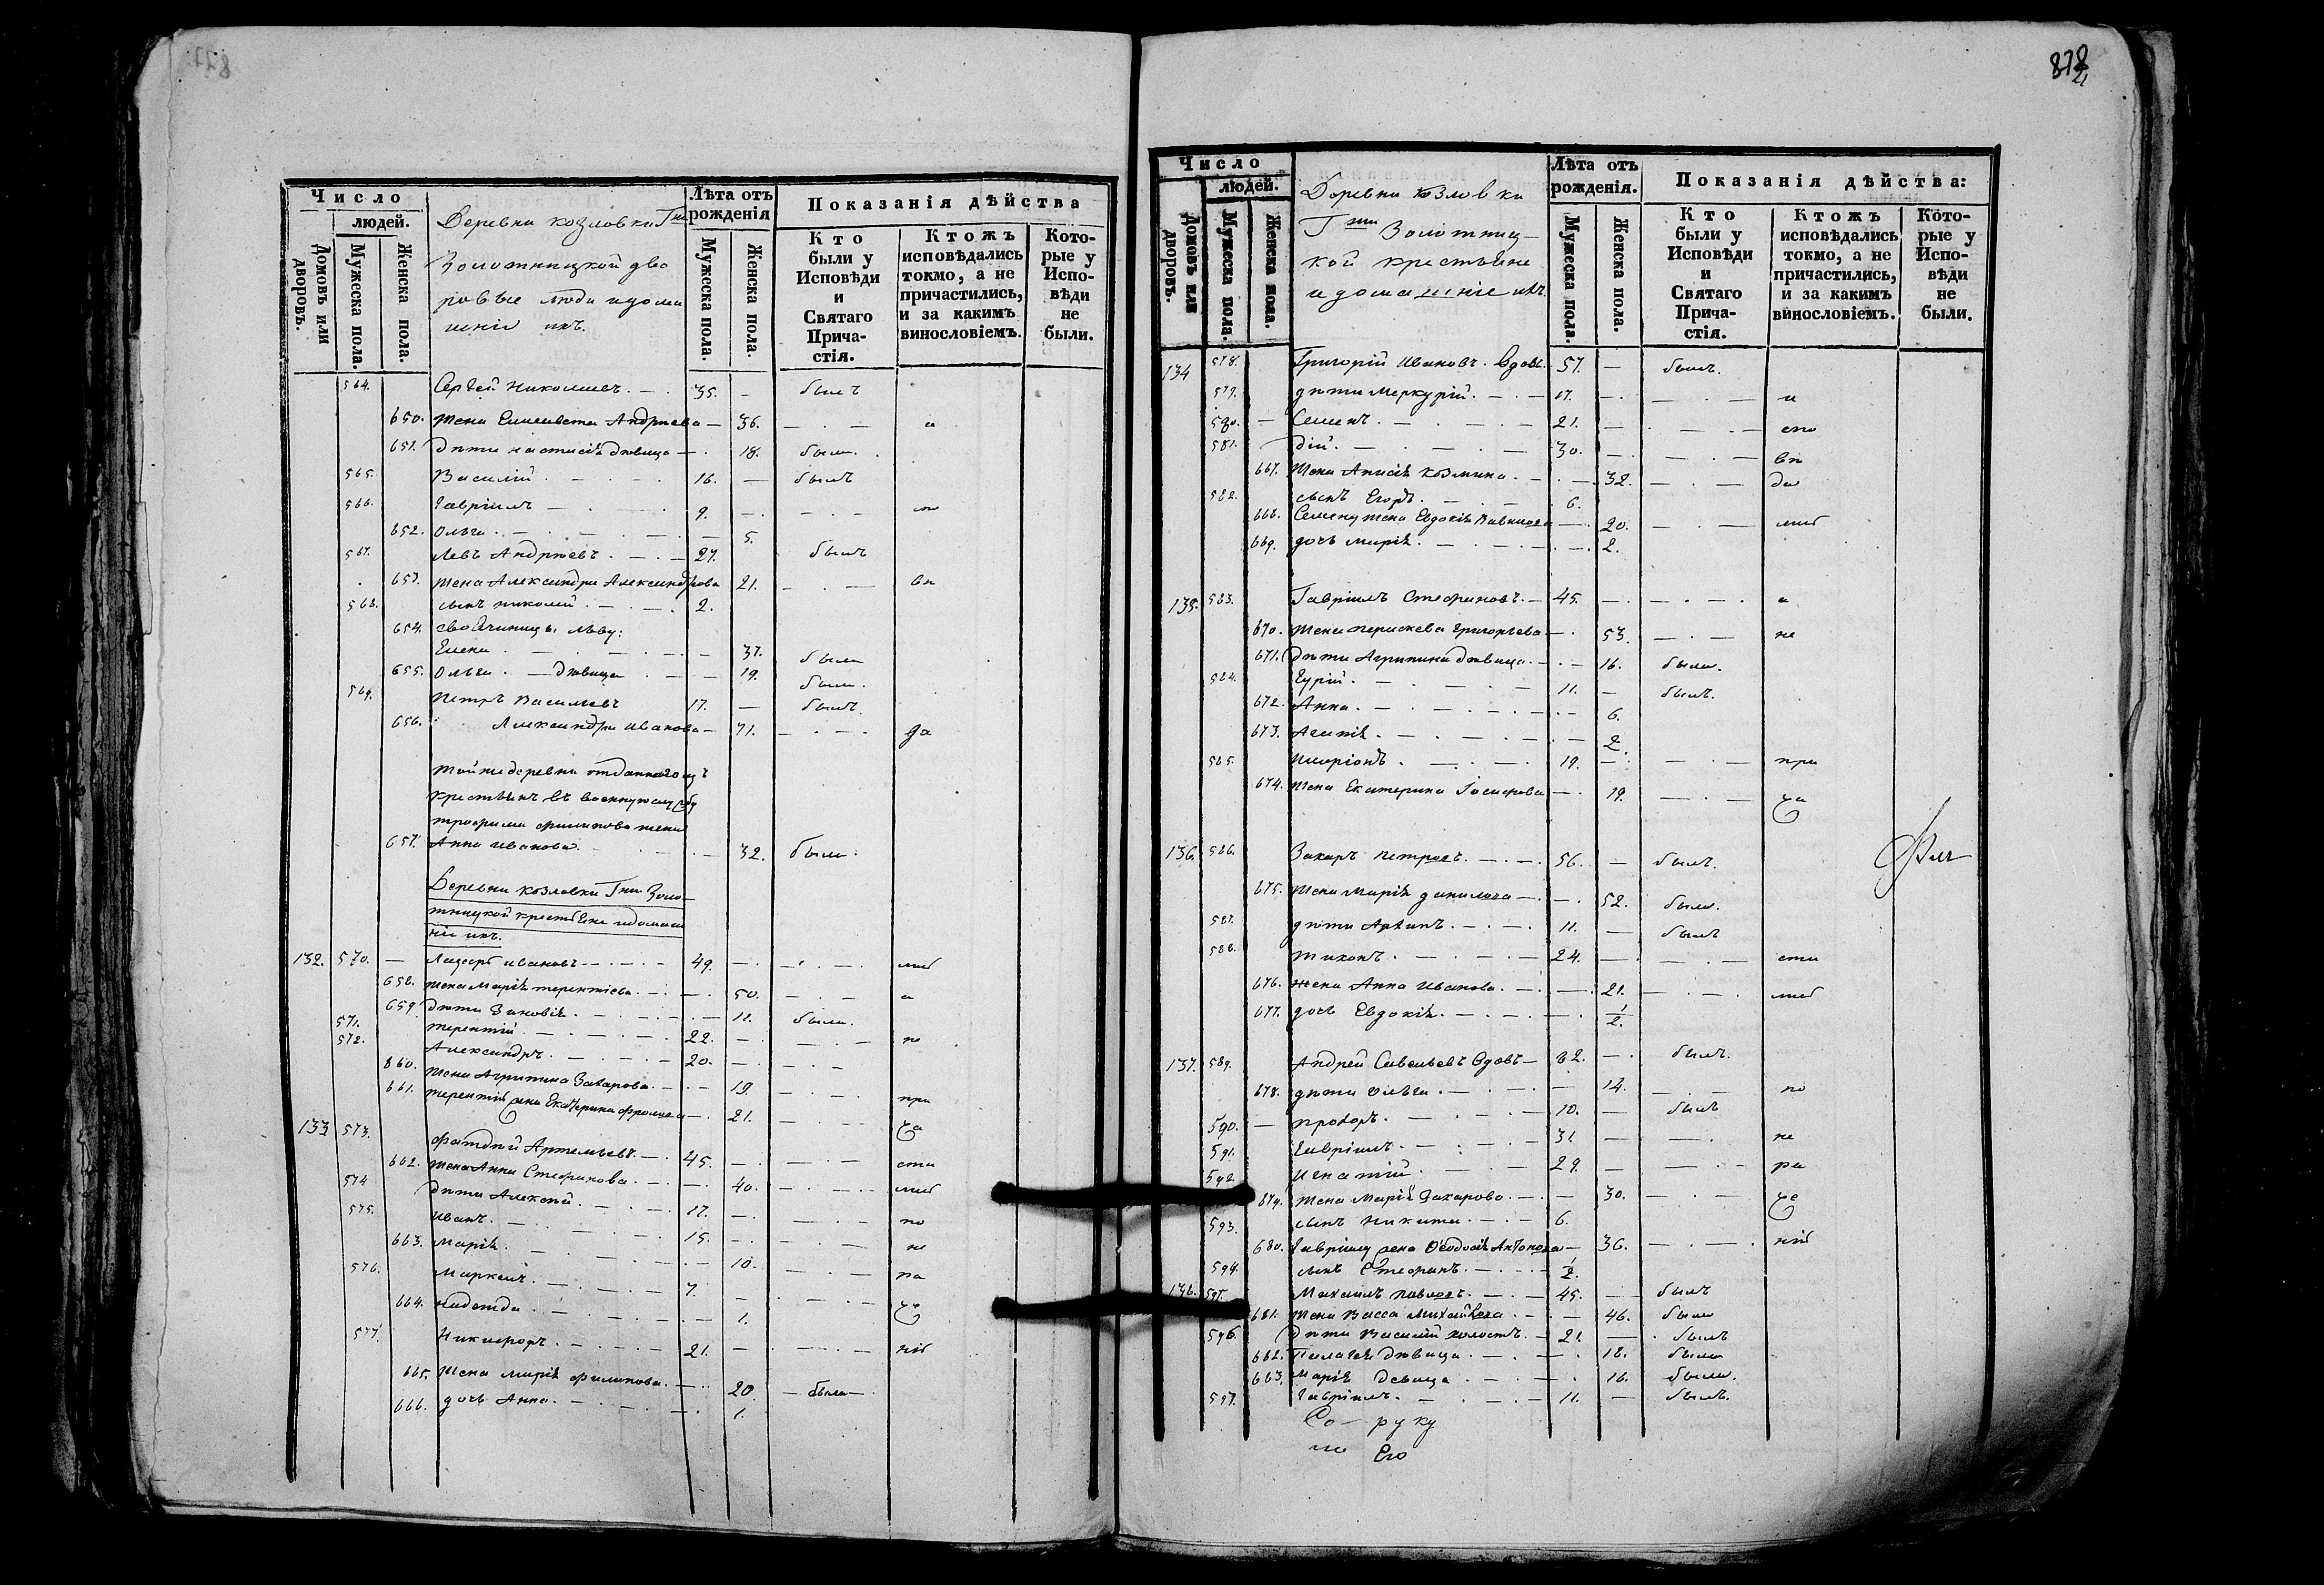 877
Число
людей.
Домовъ или дворовъ.
Мужеска пола.
Женска пола.
Деревни козловки Гжи
Золотницкой дво
ровые люди и дома
шніе ихъ.
Лѣта отъ рожденія
Мужеска пола.
Женска пола.
Показанія дѣйства
Кто были у Исповѣди и Святаго Прича-стія.
Ктожъ исповѣдались токмо, а не причастились, и за какимъ винословіемъ.
Кото-рые у Испо-вѣди не были.
564. Сергѣй Николаевъ 35. — былъ
650. жена Елисавета Андреева — 36. — а
651. дѣти Настасія дѣвица — 18. была.
565. Василій 16. — былъ
566. Гавріилъ — 9. — по
652. Ольга — 5.
567. Левъ Андреевъ — 27. былъ
653. жена Александра Александрова 21. — вѣ
568. сынъ николай 2.
654. своячиницы Льву:
Елена — 37. была
655. Ольга — дѣвица — 19. была.
569. Петръ Васильевъ 17. — былъ
656. Александра иванова — 71. — да
Той же деревни отданнаго изъ
крестьянъ въ военную службу
трофима филипова жена
657. Анна иванова — 32. была.
Деревни козловки Гжи Золо-
тницкой крестьяне и домаш
ніе ихъ.
132. 570. — Лазарь ивановъ — 49. —
658. жена Марія терентіева — 50. — а
659. дѣти Зиновія — 11. была.
571. терентій — 22. — не
572. Александръ 20. —
860. жена Агрипина Захарова — 19. — при
661. терентія жена Екатерина фролова — 21. — ча
133 573. Артемьевъ 45. — сти
662. жена Анна Стефанова — 40. —
574 дѣти Алексѣй 17. — по
575. иванъ 15. — не
663. Марія — 10. — ра
576. Маркелъ 7. — че
664. надежда — 1.
577. Никифоръ 21. — нію
665. жена марія филипова — 20. — была —
666. дочь Анна — 1.
878
21
Число
людей.
Домовъ или дворовъ.
Мужеска пола.
Женска пола.
Деревни козловки
Гжи Золотниц-
кой крестьяне
и домашніе ихъ.
Лѣта отъ рожденія.
Мужеска пола.
Женска пола.
Показанія дѣйства:
Кто были у Исповѣди и Святаго Прича-стія.
Ктожъ исповѣдались токмо, а не причастились, и за какимъ винословіемъ.
Кото-рые у Испо-вѣди не были.
134 578. Григорій ивановъ. вдовъ. 57. — былъ.
579. дѣти Меркурій — 17. — и
580. — Семенъ — 21. — спо
581. дій — 30. — вѣ
667. жена Анисія козмина — 32. — да
582. сынъ Егоръ — 6.
668. Семену жена Евдокія — 20. —
669. дочь марія — 2.
135. 583. Гавріилъ Стефановъ — 45. — а
670. жена параскева григорьева — 53. — не
671. дѣти Агрипина дѣвица — 16. была.
584. Гурій — 11. — былъ.
672. Анна — 6.
673. Агапія — 2.
585. иларіонъ 19. — при
674. жена Екатерина — 19. — ча
136. 586. Захаръ петровъ — 56. — былъ.
675. жена Марія данилова — 52. была.
587. дѣти Архипъ — 11. — былъ
588. тихонъ — 24. — сти
676. жена Анна иванова — 21. —
677. дочь Евдокія — 1/2.
137. 589. Андрей Савельевъ вдовъ — 62. — былъ.
678. дѣти Ольга — 14. — по
590. — прохоръ — 10. — былъ
591. Гавріилъ — 31 — не
592. игнатій — 29. — ра
679. жена Марія Захарова — 30. — че
593. сынъ никита — 6.
680. Гавріилу жена Ѳеодосія Антонова — 36. — нію
594. сынъ Стефанъ — 1/2.
138. 595. Михаилъ павловъ — 45. — былъ
681. жена Васса Михайлова — 46. была
596. дѣти Василій холостъ — 21. — былъ
682. Пелагея дѣвица — 18. была
683. Марія девица — 16. была.
597. Гавріилъ — 11. — былъ.
Со — руку
Его